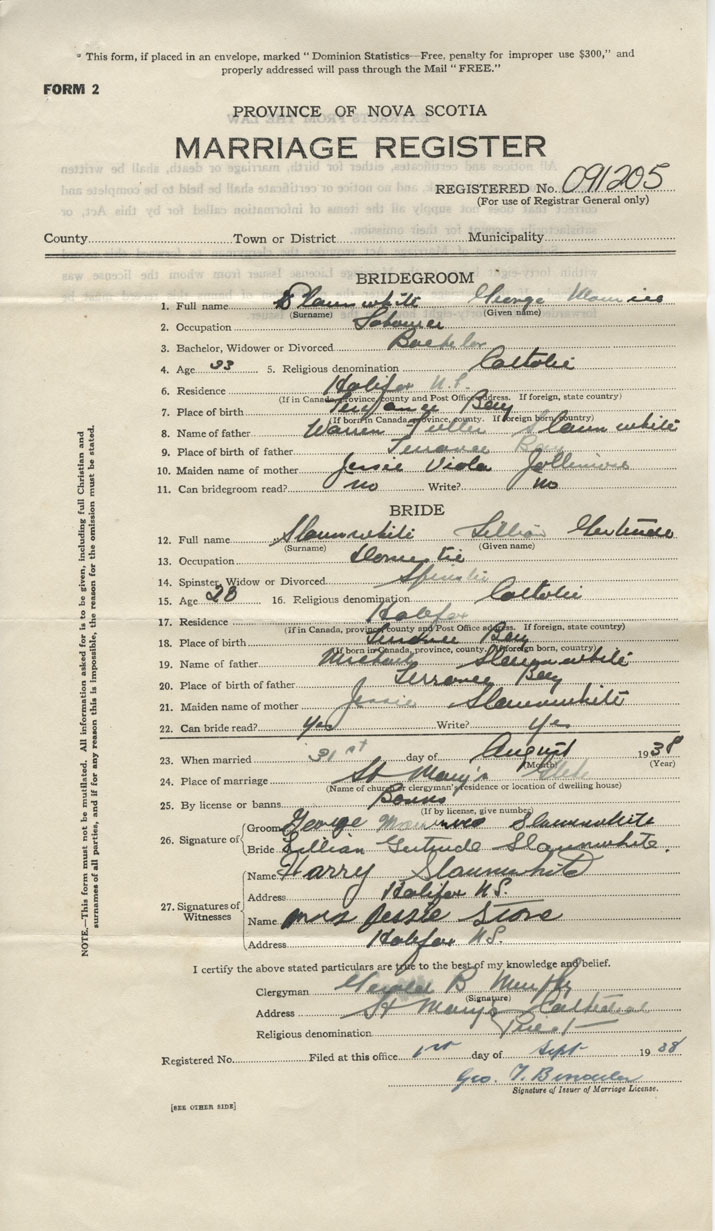 * This form, if placed in an envelope, marked " Dominion Statistics—Free, penalty for improper use $300," and
properly addressed will pass through the Mail "FREE."
FORM 2
PROVINCE OF NOVA SCOTIA
MARRIAGE REGISTER
REGISTERED No. 091205
(For use of Registrar General only)
County Town or District Municipality
BRIDEGROOM
1. Full name Slaunwhite George Maurice
(Surname) (Given name)
2. Occupation Labourer
3. Bachelor, Widower or Divorced Bachelor
4. Age 33 5. Religious denomination Catholic
6. Residence Halifax N.S.
(If in Canada, province, county and Post Office address. If foreign, state country)
7. Place of birth Terrance Bay
(If born in Canada, province, county. If foreign born, country)
8. Name of father Warren Slaunwhite
9. Place of birth of father Terrance Bay
10. Maiden name of mother Jessie Viola Jollimore
11. Can bridegroom read? no Write? no
BRIDE
12. Full name Slaunwhite Lillian Gertrude
(Surname) (Given name)
13. Occupation Domestic
14. Spinster, Widow or Divorced Spinster
15. Age 28 16. Religious denomination Catholic
17. Residence Halifax
(If in Canada, province, county and Post Office address. If foreign, state country)
18. Place of birth Terrance Bay
(If born in Canada, province, county. If foreign born, country)
19. Name of father Michael Slaunwhite
20. Place of birth of father Terrance Bay
21. Maiden name of mother Jessie Slaunwhite
22. Can bride read? Yes Write? Yes
23. When married 31st day of August 1938
(Month) (Year)
24. Place of marriage St Mary's
(Name of church or clergyman's residence or location of dwelling house)
25. By license or banns Banns
(If by license, give number)
26. Signature of
Groom George Maurice Slaunwhite
Bride Lillian Gertrude Slaunwhite.
27. Signatures of Witnesses
Name Harry Slaunwhite
Address Halifax N.S.
Name Mrs Jessie Stone
Address Halifax N.S.
I certify the above stated particulars are true to the best of my knowledge and belief.
Clergyman Gerald B Murphy
(Signature)
Address St Mary's Cathedral
Religious denomination Priest
Registered No. Filed at this office 1st day of Sept 1938
Geo. T.
Signature of Issuer of Marriage License.
[SEE OTHER SIDE]
NOTE.—This form must not be mutilated. All information asked for is to be given, including full Christian and
surnames of all parties, and if for any reason this is impossible, the reason for the omission must be stated.